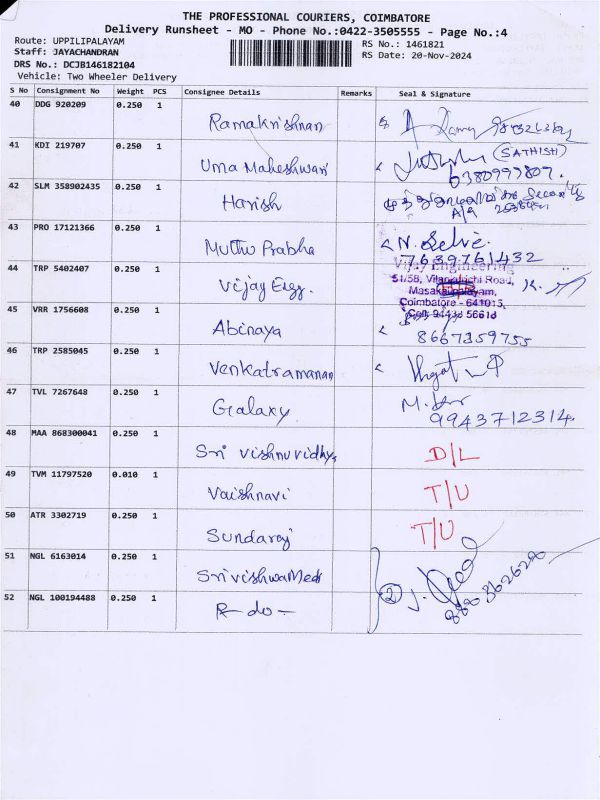 THE PROFESSIONAL COURIERS, COIMBATORE
Delivery Runsheet - MO - Phone No.:0422-3505555 - Page No.:4
Route: UPPILIPALAYAM
RS No.: 1461821
Staff: JAYACHANDRAN
RS Date: 20-Nov-2024
DRS No.: DCJB146182104
Vehicle: Two Wheeler Delivery
S No Consignment No Weight PCS Consignee Details Remarks Seal & Signature
40 DDG 920209 0.250 1
Ramakrishnan
41 KDI 219707 0.250 1
Uma Maheshwari (SATHISH)
6380997807.
42 SLM 358902435 0.250 1
Harish
43 PRO 17121366 0.250 1
Muthu Prabha N. Selvi.
7639761432
44 TRP 5402407 0.250 1
Vijay Engg.
Vijay Engineering
51/5B, Road,
Masakalipalayam,
Coimbatore - 641015,
Cell: 94433 56618
45 VRR 1756608 0.250 1
Abinaya 8667359755
46 TRP 2585045 0.250 1
Venkatramanan
47 TVL 7267648 0.250 1
Galaxy 9943712314.
48 MAA 868300041 0.250 1
Sri Vishnuvidhya D/L
49 TVM 11797520 0.010 1
Vaishnavi T/U
50 ATR 3302719 0.250 1
Sundaraj T/U
51 NGL 6163014 0.250 1
Srivishwa Medi
52 NGL 100194488 0.250 1
- do - 2